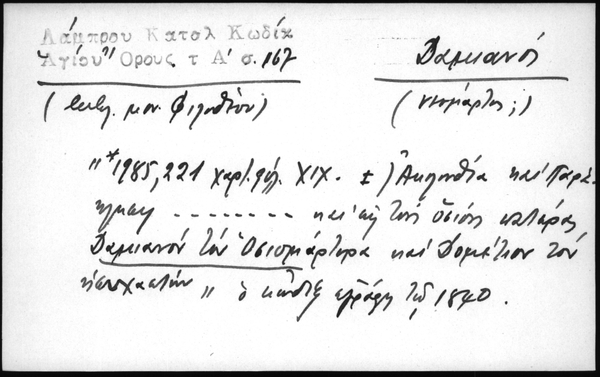 Λάμπρου Καταλ Κωδίκ
Ἁγίου Ὄρους τ Α' σ. 167
Δαμιανός
(βιβλ. μον. Φιλοθέου)
(νεομάρτυς;)
"*1985, 221 χαρτ. φύλ. XIX. Ἀκολουθία καὶ Παρά-
κλησις ........ καὶ εἰς τοὺς ὁσίους πατέρας
Δαμιανόν τὸν Ὁσιομάρτυρα καὶ Δομέτιον τὸν
ἡσυχαστήν" ὁ κῶδιξ ἐγράφη τῷ 1840.